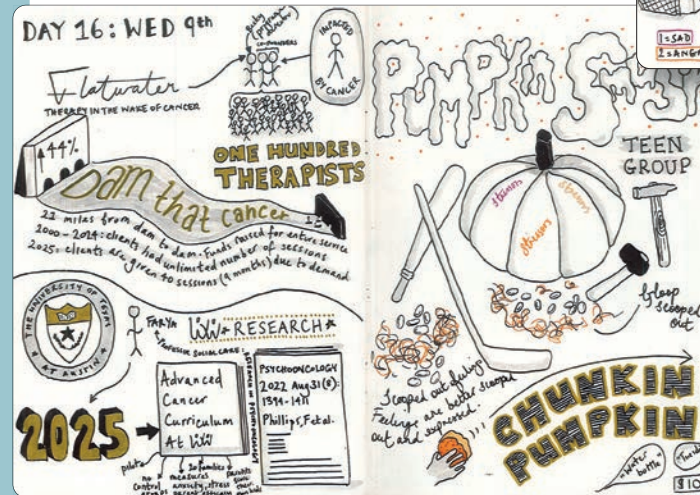 DAY 16: WED 9th
CO-FOUNDERS
IMPACTED
BY CANCER
Flatwater
THERAPY IN THE WAKE OF CANCER
44%
ONE HUNDRED
THERAPISTS
Dam that cancer
21 miles from dam to dam. Funds raised for entire service
2000 - 2024: clients had unlimited number of sessions
2025: clients are given 40 sessions (9 months) due to demand
THE UNIVERSITY OF TEXAS
AT AUSTIN
FARYA
PROFESSOR SOCIAL CARE
RESEARCH
Advanced
Cancer
Curriculum
At
PSYCHOONCOLOGY
2022 Aug 31(8):
1394-1411
Phillips, F et al.
2025
pilot
no
control
measures
anxiety, stress
20 families
parents
PUMPKIN
TEEN
GROUP
stressors
stressors
stressors
Gloop
scooped
out
Scooped out feelings
Feelings are better scooped
out and expressed.
CHUNKIN
PUMPKIN
"Water
bottle"
1=SAD